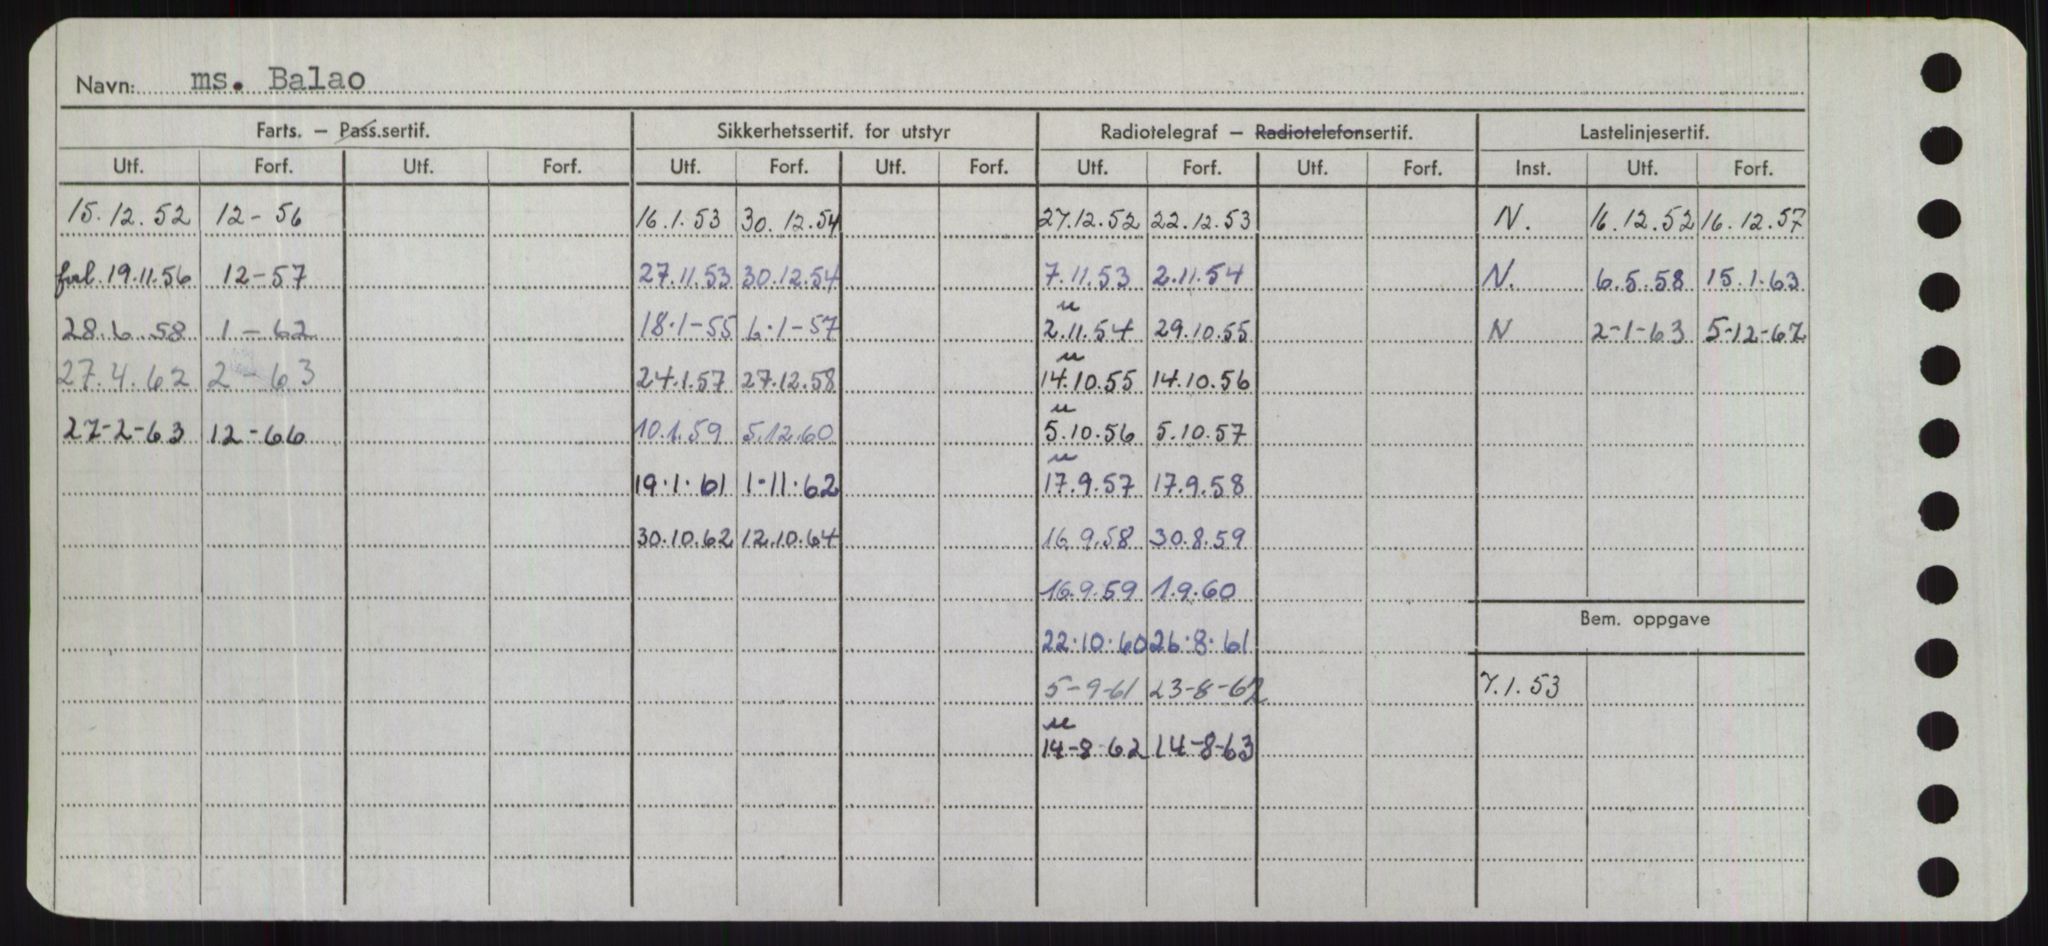 Navn: ms. Balao
Farts. — Pass.sertif. Sikkerhetssertif. for utstyr Radiotelegraf — Radiotelefonsertif. Lastelinjesertif.
Utf. Forf. Utf. Forf. Utf. Forf. Utf. Forf. Utf. Forf. Utf. Forf. Inst. Utf. Forf.
15.12.52 12-56 16.1.53 30.12.54 27.12.52 22.12.53 N. 16.12.52 16.12.57
forl. 19.11.56 12-57 27.11.53 30.12.54 7.11.53 2.11.54 N. 6.5.58 15.1.63
28.6.58 1-62 18.1-55 6.1-57 u 2.11.54 29.10.55 N 2-1-63 5-12-67
27.4.62 2-63 24.1.57 27.12.58 u 14.10.55 14.10.56
27-2-63 12-66 10.1.59 5.12.60 u 5.10.56 5.10.57
19.1.61 1.11.62 u 17.9.57 17.9.58
30.10.62 12.10.64 16.9.58 30.8.59
16.9.59 1.9.60
Bem. oppgave
22.10.60 26.8.61
5-9-61 23-8-62 7.1.53
u 14-8-62 14-8-63